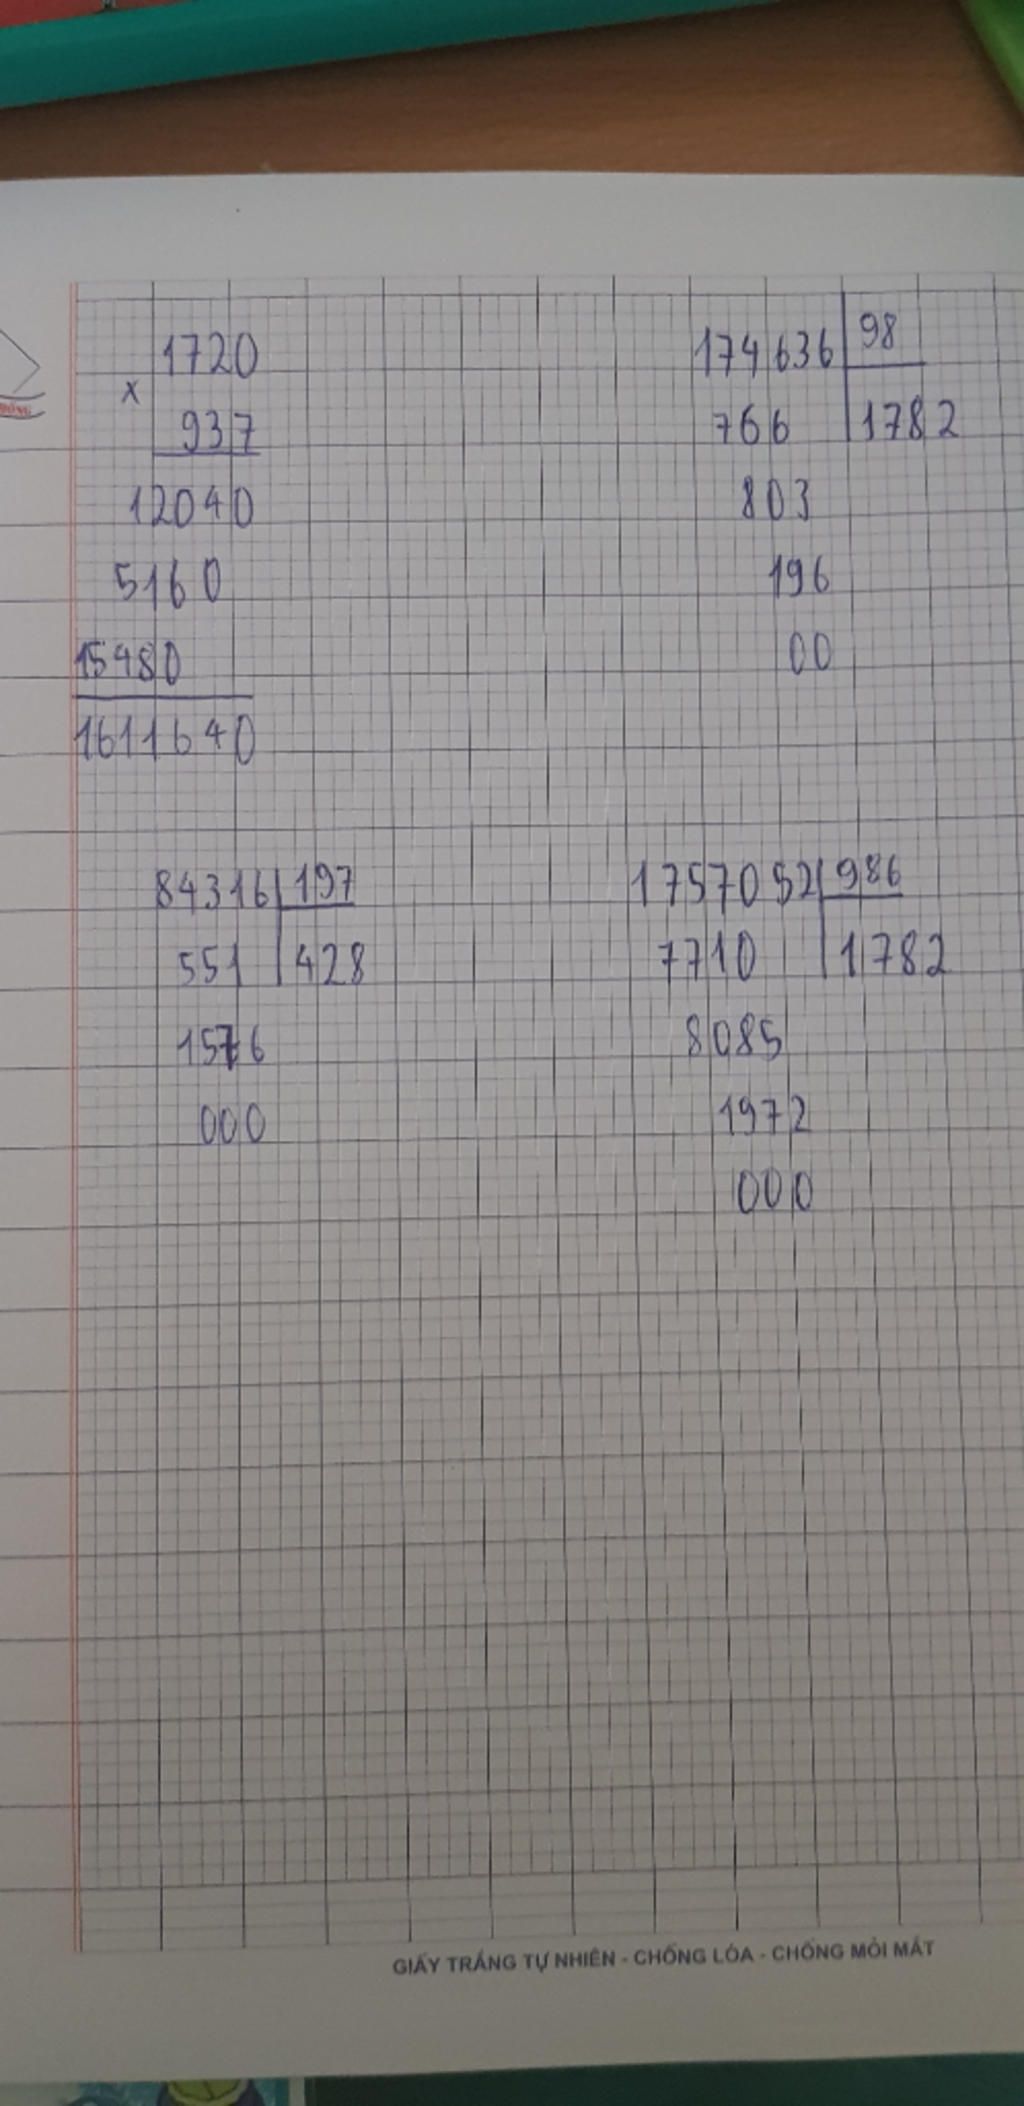 1720
x
937
12040
5160
15480
1611640
174636 98
766 1782
803
196
00
84316 197
551 428
1576
000
1757052 986
7710 1782
8085
1972
000
GIẤY TRẮNG TỰ NHIÊN - CHỐNG LÓA - CHỐNG MỎI MẮT